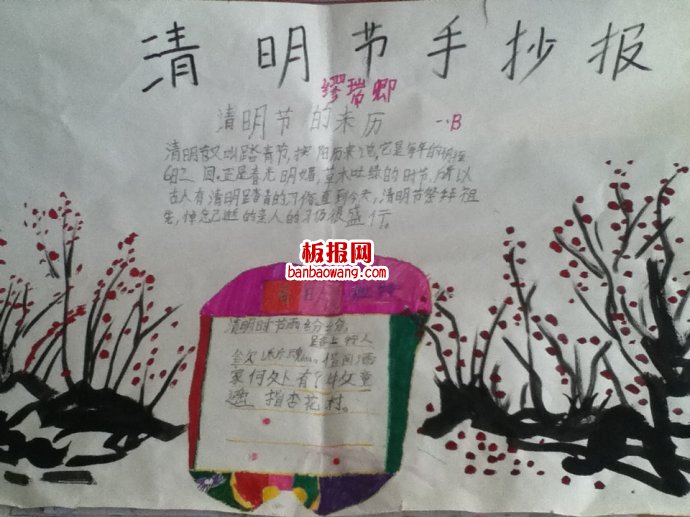 清明节手抄报
缪瑞卿
清明节的来历
一.B
清明节又叫踏青节,按阳历来说,它是每年的
6日之间,正是春光明媚,草木吐绿的时节,所以
古人有清明踏青的习俗直到今天,清明节祭拜祖
先,悼念已逝的亲人的习俗很盛行。
板报网
banbaowang.com
清明时节雨纷纷,
路上行人
欲断魂。借问酒
家何处有?牧童
遥指杏花村。